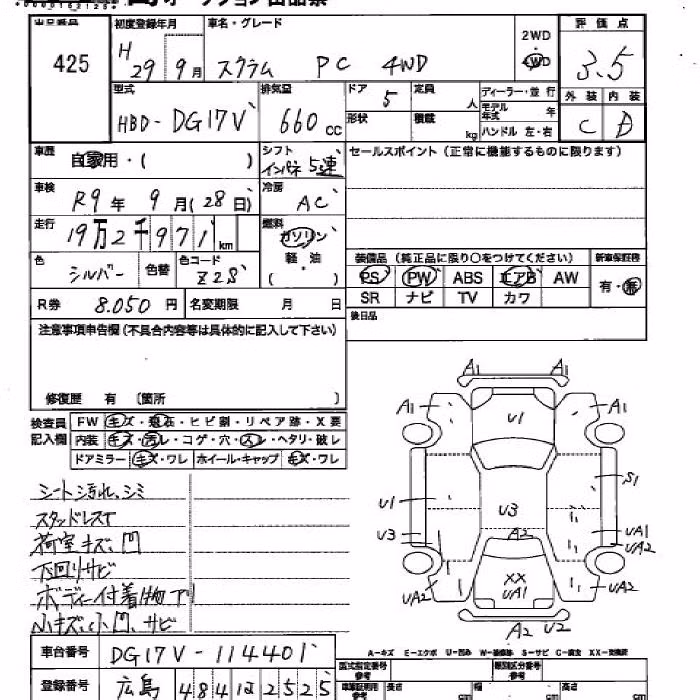 出品番号 初度登録年月 車名・グレード 2WD 評価点
425 H 29 9月 スクラム PC 4WD 4WD 3.5
型式 排気量 ドア 定員 ディーラー・並行 外装 内装
HBD-DG17V 660cc 5 人 モデル年式 年 C D
形状 積載 kg ハンドル 左・右
車歴 自家用・( ) シフト インパネ5速 セールスポイント(正常に機能するものに限ります)
車検 R9年 9月(28日) 冷房 AC
走行 19万2千971km 燃料 ガソリン
軽・油
( )
色 シルバー 色替 色コード Z2S 装備品(純正品に限り○をつけてください) 新車保証書
PS PW ABS エアB AW 有・無
R券 8.050円 名変期限 月 日 SR ナビ TV カワ
注意事項申告欄(不具合内容等は具体的に記入して下さい) 後日品
修復歴 有 〔箇所 〕
検査員記入欄 FW キズ・飛石・ヒビ割・リペア跡・X要
内装 キズ・汚レ・コゲ・穴・スレ・ヘタリ・破レ
ドアミラー キズ・ワレ ホイール・キャップ キズ・ワレ
A1 A1
A1 U1 A1
シート汚れ、シミ
スタッドレスT
荷室キズ、凹
下回りサビ
ボディー付着物アリ
小キズ、小凹、サビ
U1 S1
U3 U3 UA1
A2 UA2
UA2 XX UA1 UA2
A2 U2
A-キズ E-エクボ U-凹み W-補修跡 S-サビ C-腐食 XX-交換済
車台番号 DG17V-114401
型式指定番号 参考 類別区分番号 参考
登録番号 広島 484 2525
車庫証明用 参考 長さ cm 幅 cm 高さ cm